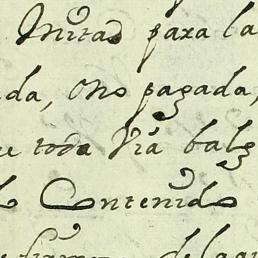 Mitad para la
da, ono pagada,
toda Via balg
Contenido